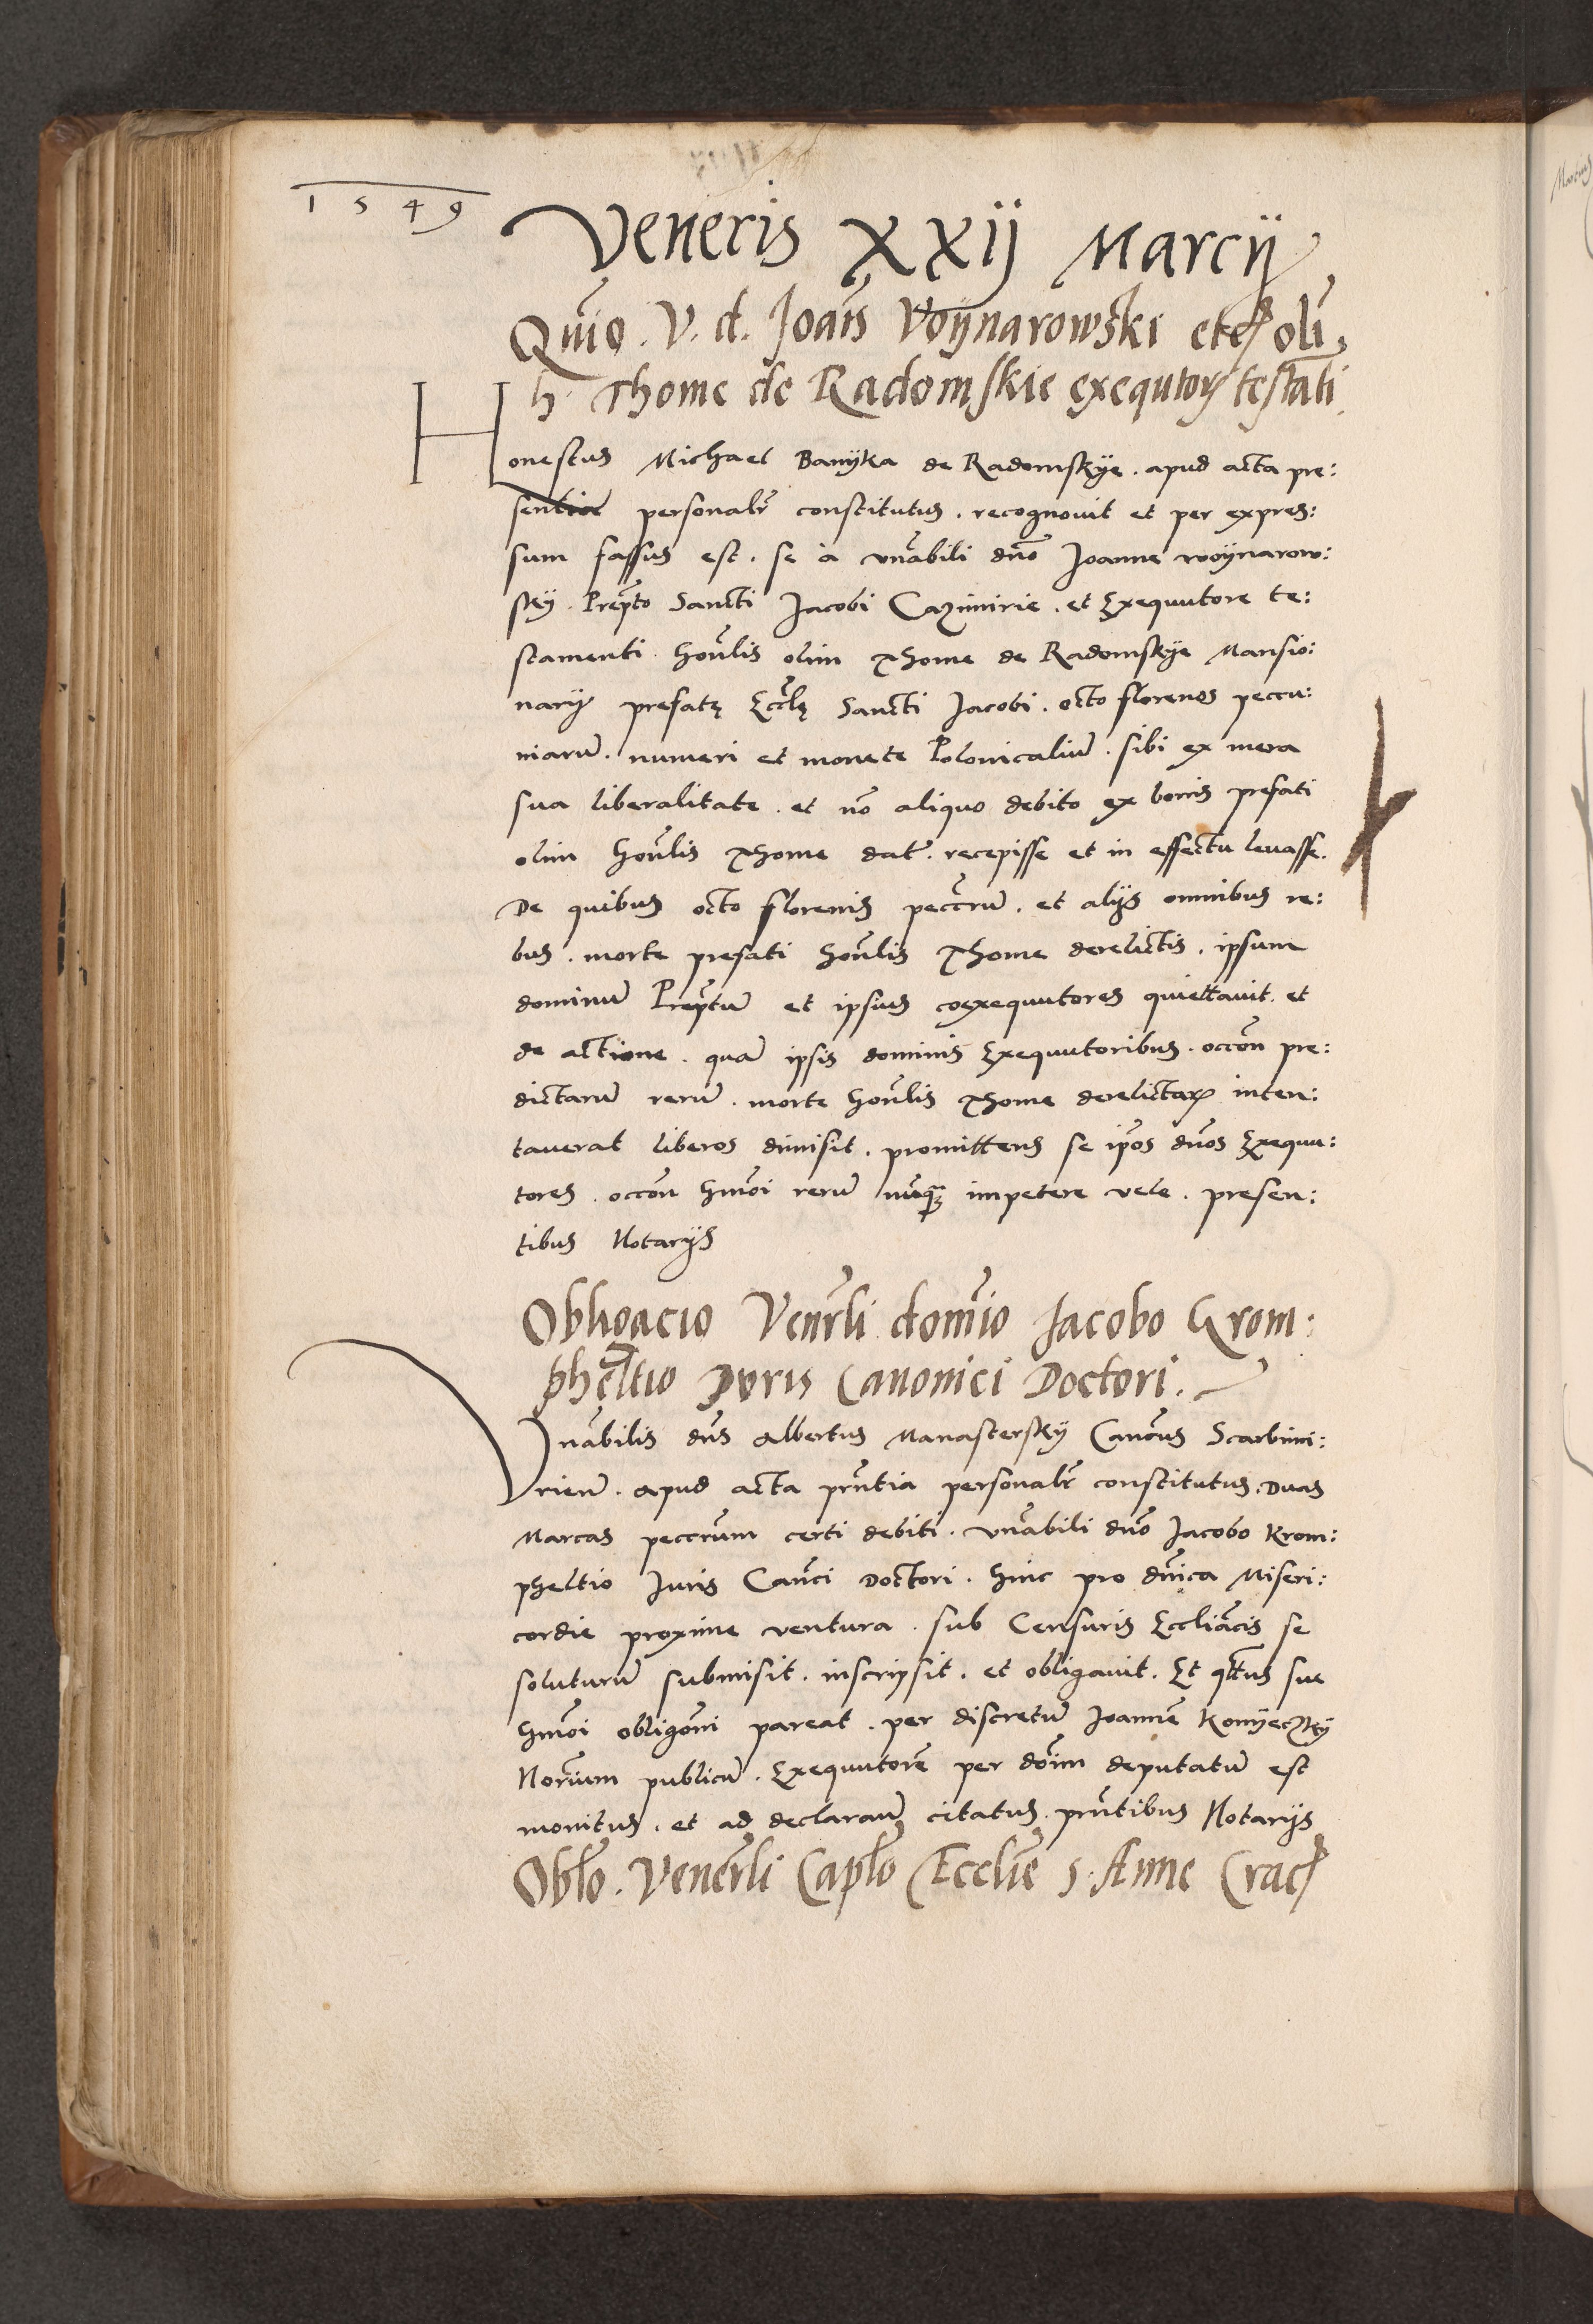 1549
Veneris XXij Marcij
Quio. V. d. Joãis Voÿnarowski etc oli,
h. Thome de Radomskie exequtorꝫ testãti
Honestus Michael Banÿka de Radomskÿe. apud acta pre:
sentia personalr̃ constitutus. recognouit et per expres:
sum fassus est. se à vnãbili dño Joanne woÿnarow:
skÿ. Prep̃to Sancti Jacobi Cazimirie. et Exequutore te:
stamenti hoñlis olim Thome de Radomskÿe Mansio:
narij prefatę Ecclę Sancti Jacobi. octo florenos peccu:
niarũ. numeri et monete Polonicaliũ. sibi ex mera
sua liberalitate. et nõ aliquo debito ex bonis prefati
olim hoñlis Thome dat. recepisse et in effectu leuasse.
De quibus octo florenis pecc̃rũ. et alijs omnibus re:
bus. morte prefati hoñlis Thome derelictis. ipsum
dominũ Prep̃tum et ipsius coexequutores quiettauit. et
de actione. quã ipsis dominis Exequutoribus. occõn pre:
dictarũ rerũ. morte hoñlis Thome derelictaꝝ inten:
tauerat liberos dimisit. promittens se ip̃os dños Exequu:
tores. occõn hmõi rerũ nũqꝫ impetere vele. presen:
tibus Notarijs
Obligacio Venr̃li domĩo Jacobo Krom:
pheltio Juris Canonici Doctori.
Vnãbilis dñs Albertus Manasterskÿ Cancus Scarbimi:
rien̄. apud acta prñtia personalr̃ constitutus. Duas
Marcas peccr̃um certi debiti. vnãbili dño Jacobo Krom:
pheltio Juris Cañci Doctori. hinc pro dñica Miseri:
cordie proxime ventura. sub Censuris Eccliãcis se
soluturũ submisit. inscripsit. et obligauit. Et q̃tus sue
hmõi obligõni pareat. per discretũ Joannẽ Konÿeczkÿ
Norĩum publicũ. Exequutorẽ per dõim deputatũ est
monitus. et ad declaranũ citatus. prñtibus Notarijs
Oblõ. Venerl̃i Caplõ Eccliẽ S. Anne Crac